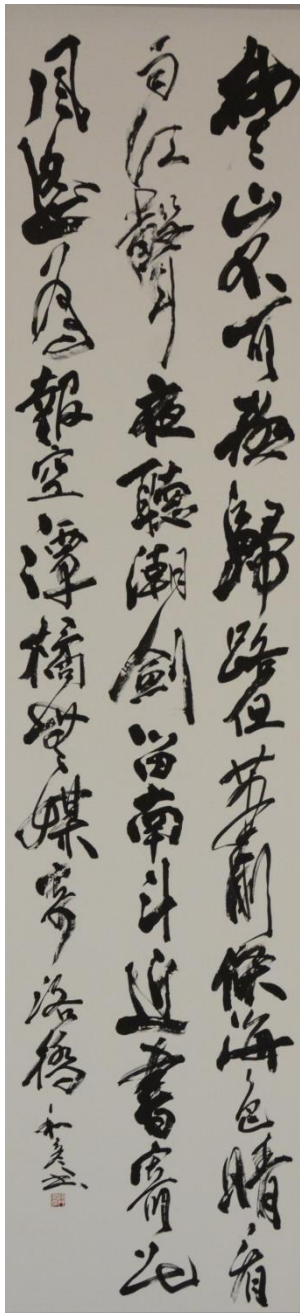 楚山不可極歸路但蕭條海色晴看
雨江聲夜聽潮劍留南斗近書寄北
風遥為報空潭橘無媒寄洛橋